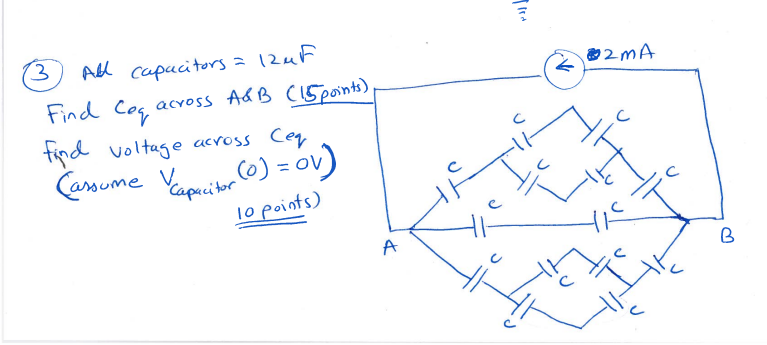 ③ All capacitors = 12uF
Find Ceq across A&B (15 points)
find voltage across Ceq
(assume Vcapacitor(0) = 0V)
10 points)
2mA
C
C
C
C
C
C
C
C
A
B
C
C
C
C
C
C